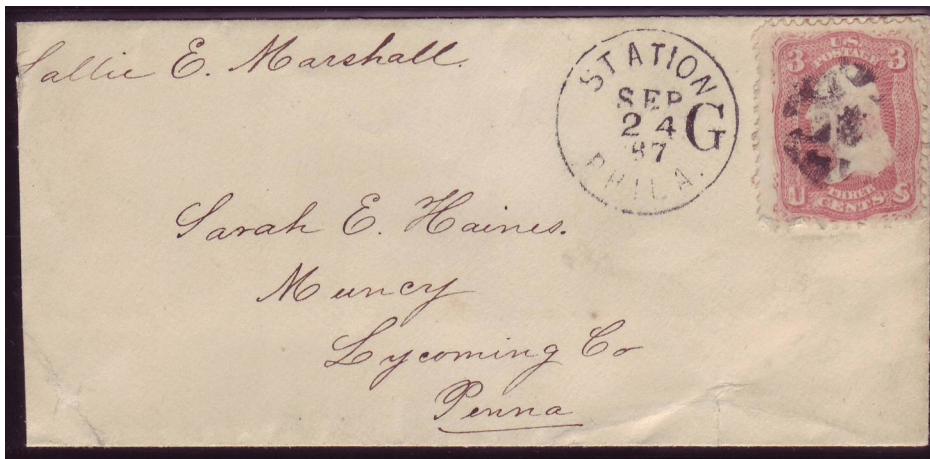 Sallie E. Marshall.
STATION G
SEP
24
'87
PHILA.
3 U.S. POSTAGE 3
U THREE CENTS S
Sarah E. Haines.
Muncy
Lycoming Co
Penna